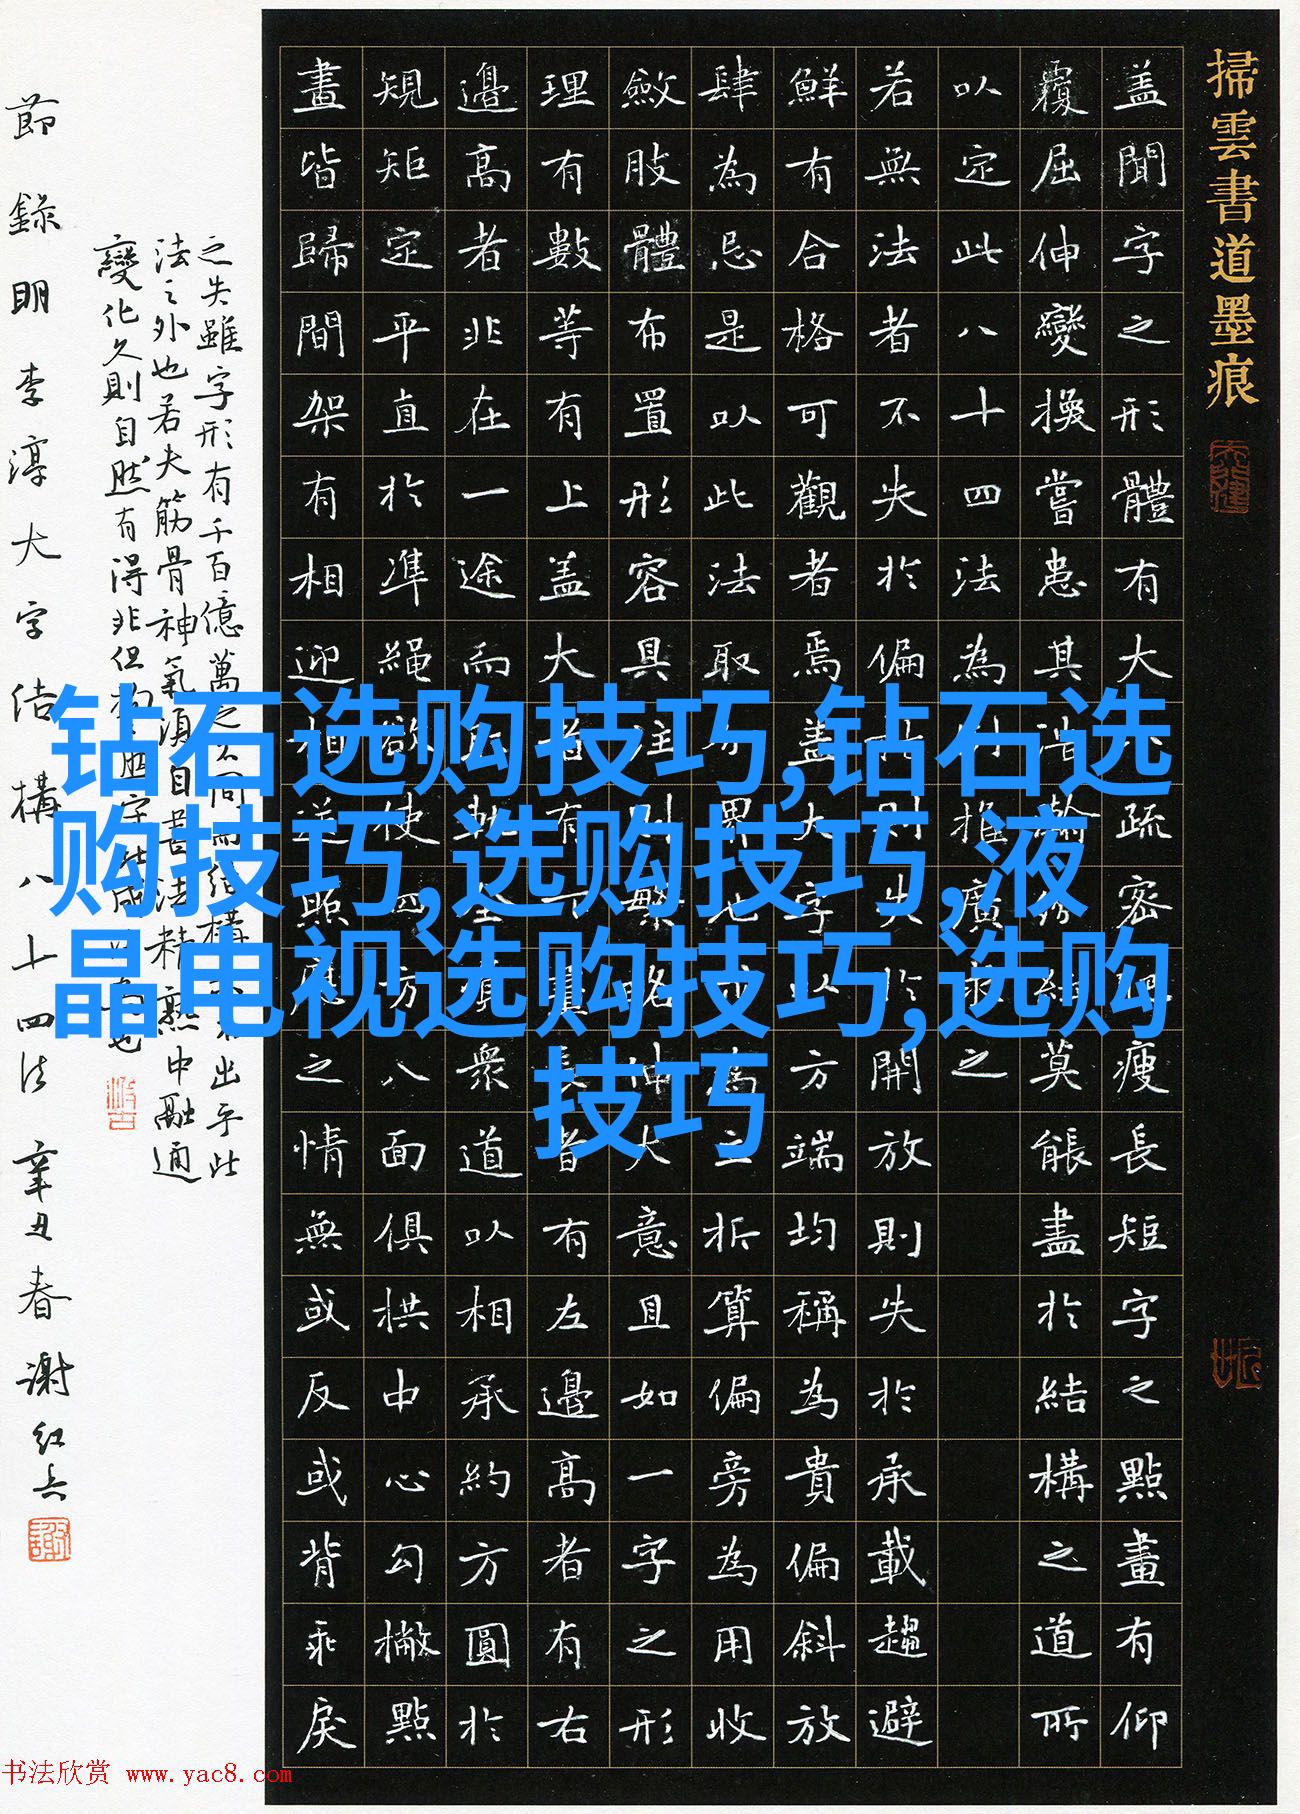 掃雲書道墨痕
盖聞字之形體有大疏密瘦長短字之點畫有仰
覆屈伸變換嘗患其浩瀚紛紜莫能盡於結構之道所
以定此八十四法為例推廣求之
若無法者不失於偏枯則失於開放則失於承載趨避
鮮有合格可觀者焉盖大字以方端均稱為貴偏斜放
肆為忌是以此法取分界地步為主折算偏旁為用收
斂肢體布置形容具注則繁略伸大意且如一字之形
理有數等有上盖大者有下長者有左邊高者有右
邊高者非在一途而取眾道以相承約方圓於
規矩定平直於準繩欲使四方八面俱拱中心勾撇點
畫皆歸間架有相迎相送照應之情無或反或背乖戾
之失雖字形有千百億萬之不同而结構出乎此
法之外也若夫筋骨神氣須自書法精熟中融通
變化久則自然有得非但字也
節錄明李淳大字结構八十四法 辛丑春 謝红兵
钻石选购技巧,钻石选
购技巧,选购技巧,液
晶电视选购技巧,选购
技巧
书法欣赏 www.yac8.com